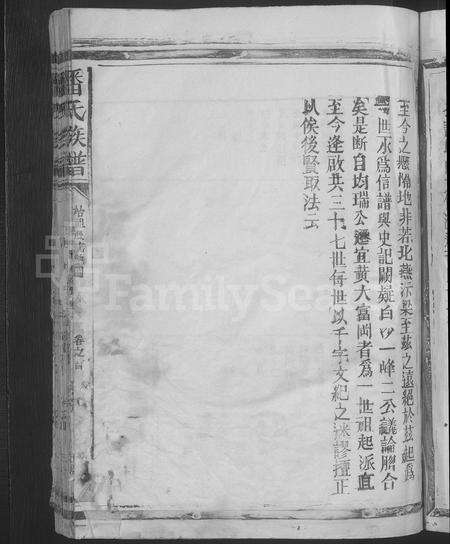 至今之懸隔地非若北燕汴梁至茲之遠絕於茲起爲
一世永爲信譜與史記闕疑白沙一峰二公議論脗合
矣是斷自均瑞公遷宜黄大富岡者爲一世祖起派直
至今逢啟共三十七世每世以千字文紀之迷謬擅正
以俟後賢取法云
潘氏族譜
卷之首
FamilySearch